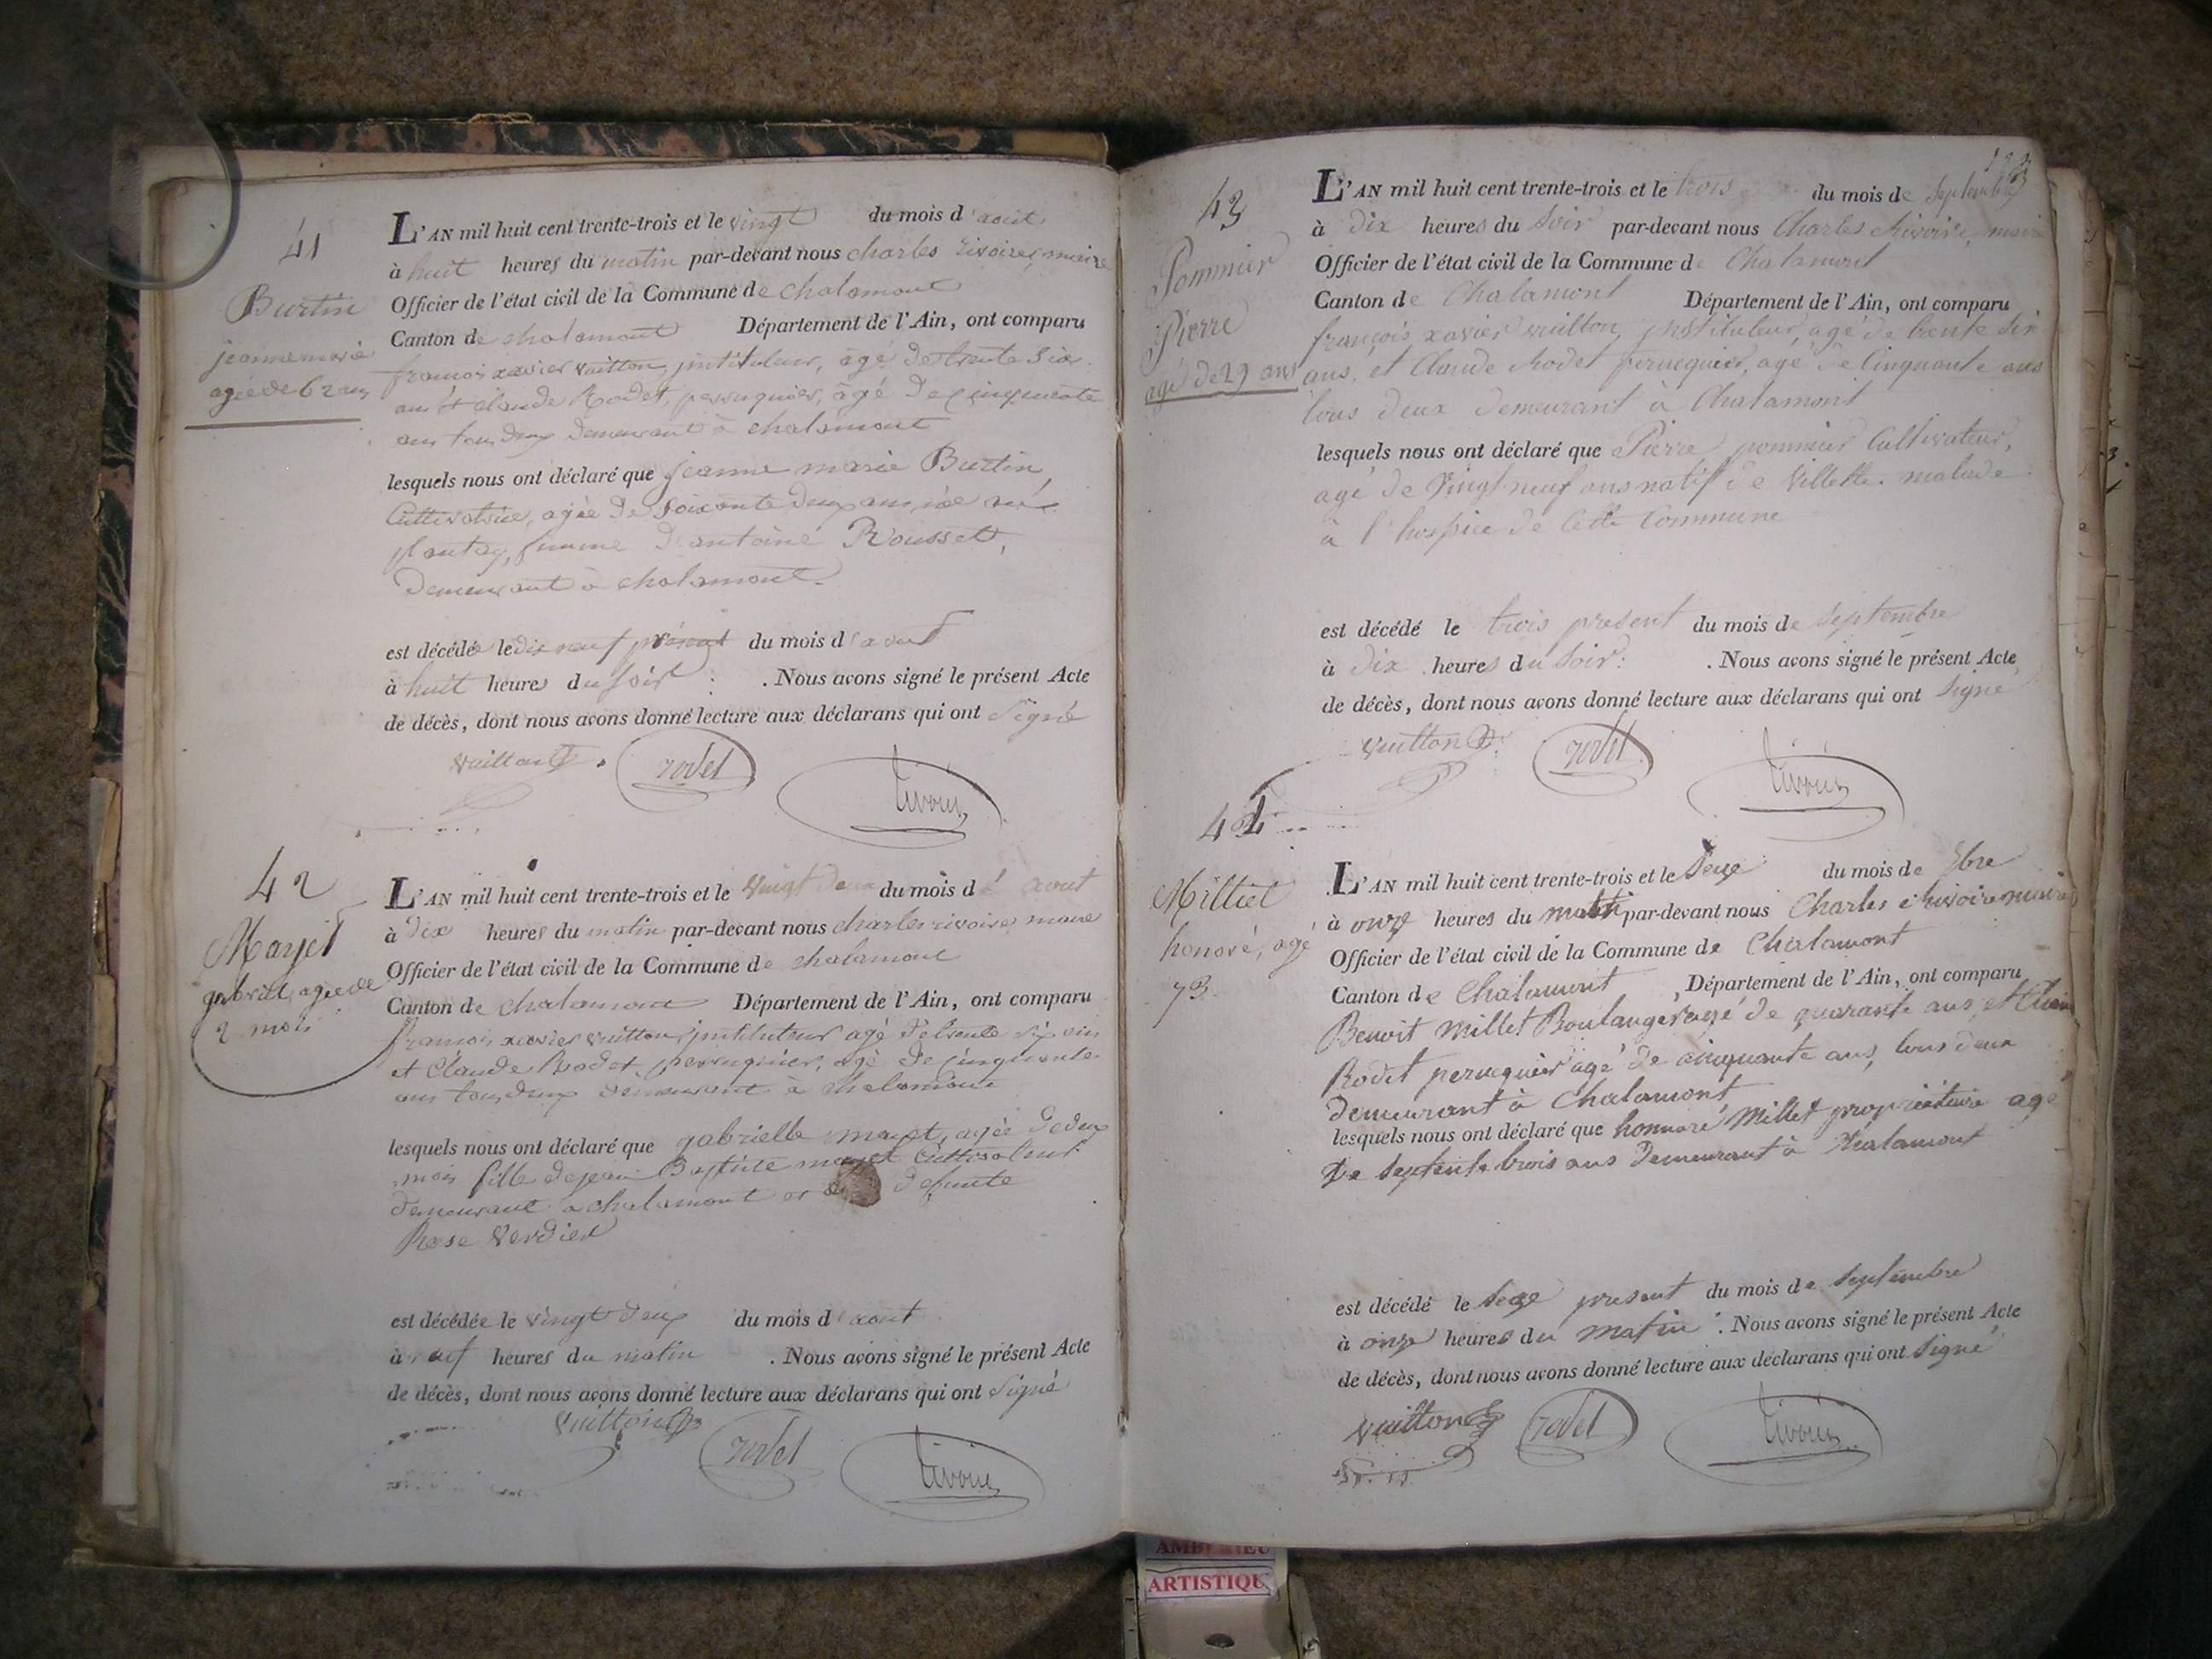 41
Burtin
jeanne marie
agée de 62 ans
L'AN mil huit cent trente-trois et le vingt du mois d'aout
à huit heures du matin par-devant nous charles rivoire, maire
Officier de l'état civil de la Commune de chalamont
Canton de chalamont Département de l'Ain, ont comparu
francois xavier vuitton, instituteur, agé de trente six
ans et claude Rodet, perruquier, âgé de cinquante
ans tous deux demeurant à chalamont
lesquels nous ont déclaré que jeanne marie Burtin,
Cultivatrice, agée de soixante deux ans née au
plantay, femme d'antoine Rousset,
demeurant à chalamont.
est décédée le dix neuf présent du mois d'aout
à huit heures du soir . Nous avons signé le présent Acte
de décès, dont nous avons donné lecture aux déclarans qui ont signé
vuitton rodet rivoire
42
Mayet
gabriel, agée de
2 mois
L'AN mil huit cent trente-trois et le vingt deux du mois d'aout
à dix heures du matin par-devant nous charles rivoire, maire
Officier de l'état civil de la Commune de chalamont
Canton de chalamont Département de l'Ain, ont comparu
francois xavier vuitton, instituteur agé de trente six ans
et Claude Rodet, perruquier, agé de cinquante
ans tous deux demeurant à chalamont
lesquels nous ont déclaré que gabrielle mayet, agée de deux
mois fille de jean Baptiste mayet cultivateur
demeurant a chalamont et de defunte
Rose Verdier
est décédée le vingt deux du mois d'aout
à neuf heures du matin . Nous avons signé le présent Acte
de décès, dont nous avons donné lecture aux déclarans qui ont signé
vuitton rodet rivoire
43
Pommier
Pierre
agé de 29 ans
L'AN mil huit cent trente-trois et le trois du mois de septembre
à dix heures du soir par-devant nous Charles Rivoire, maire
Officier de l'état civil de la Commune de Chalamont
Canton de Chalamont Département de l'Ain, ont comparu
françois xavier vuitton, instituteur, agé de trente six
ans, et Claude Rodet perruquier, agé de Cinquante ans
tous deux demeurant à Chalamont
lesquels nous ont déclaré que Pierre pommier Cultivateur,
agé de Vingt neuf ans natif de Villette. malade
à l'hospice de Cette Commune
est décédé le trois présent du mois de septembre
à dix heures du soir . Nous avons signé le présent Acte
de décès, dont nous avons donné lecture aux déclarans qui ont signé
vuitton rodet rivoire
44
Milliet
honoré, agé
73.
L'AN mil huit cent trente-trois et le seize du mois de 9bre
à onze heures du matin par-devant nous Charles Rivoire maire
Officier de l'état civil de la Commune de Chalamont
Canton de Chalamont Département de l'Ain, ont comparu
Benoit Millet Boulanger agé de quarante ans, et
Rodet perruquier agé de cinquante ans, tous deux
demeurant à Chalamont
lesquels nous ont déclaré que honnoré Millet propriétaire agé
de septente trois ans demeurant à Chalamont
est décédé le seize présent du mois de septembre
à onze heures du matin . Nous avons signé le présent Acte
de décès, dont nous avons donné lecture aux déclarans qui ont signé
vuitton rodet rivoire
ARTISTIQU